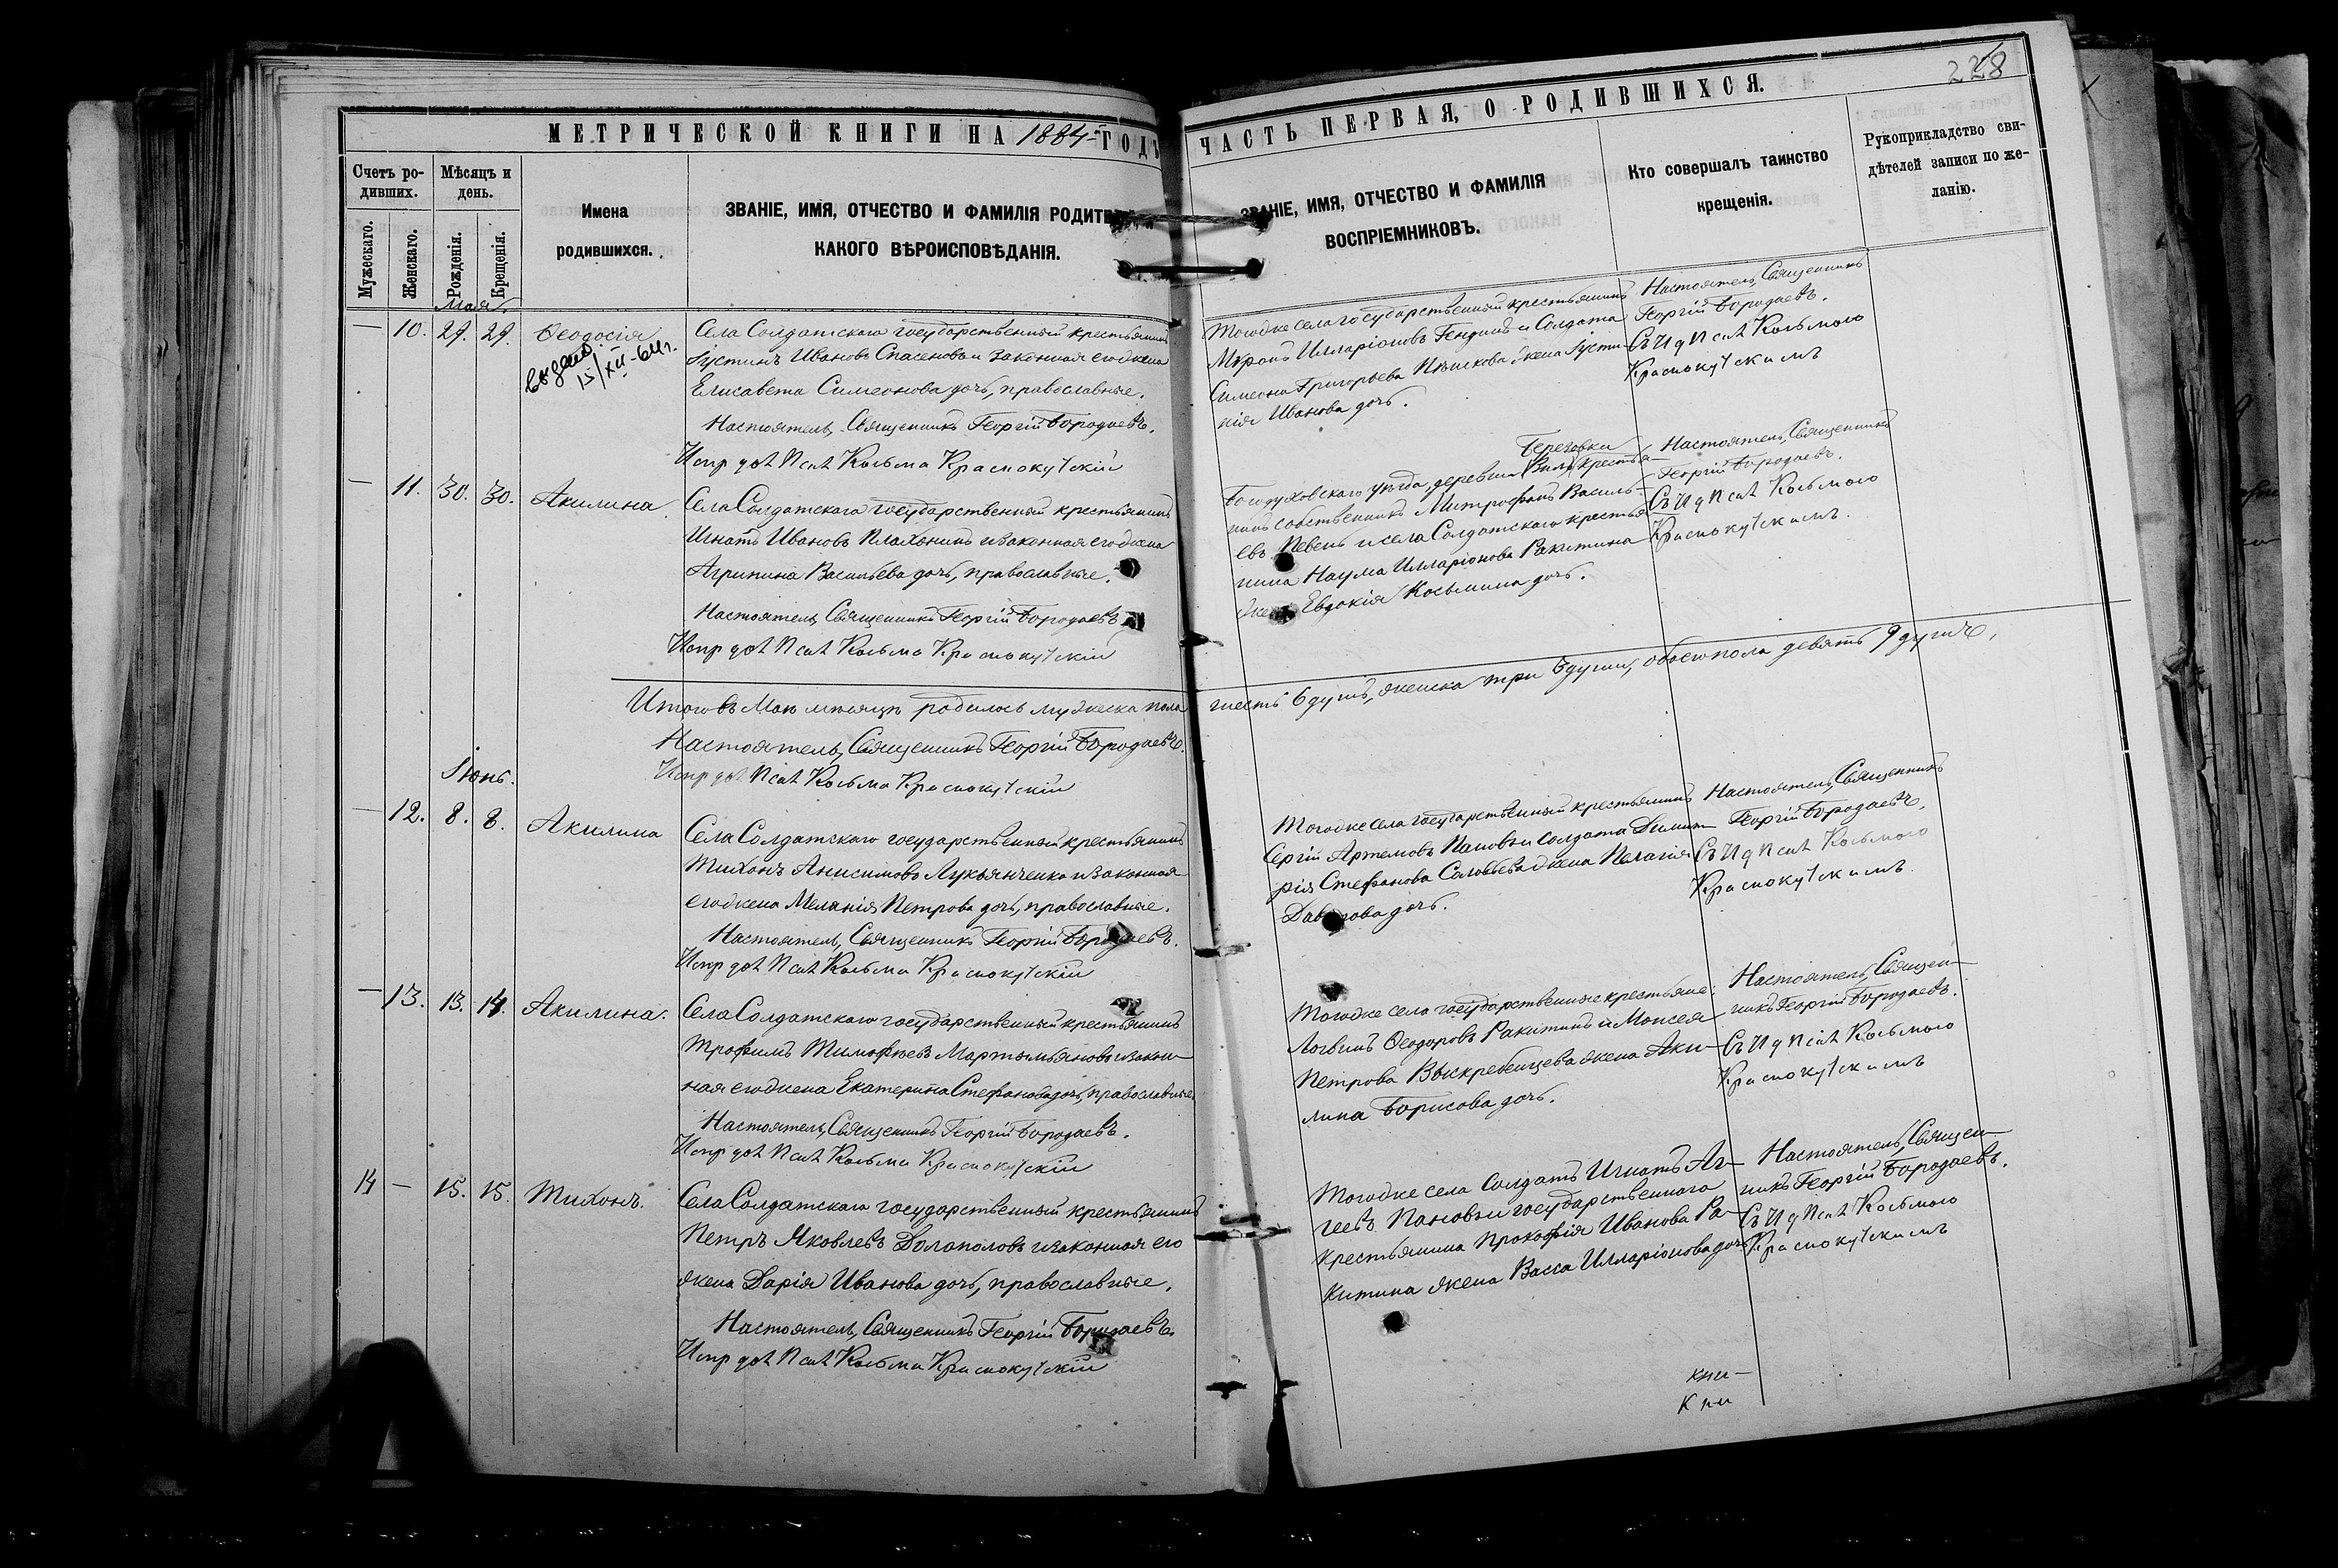 МЕТРИЧЕСКОЙ КНИГИ НА 1884-й ГОДЪ
Счетъ ро-
дившихъ.
Мѣсяцъ и
день.
Имена
родившихся.
ЗВАНІЕ, ИМЯ, ОТЧЕСТВО И ФАМИЛІЯ
КАКОГО ВѢРОИСПОВѢДАНІЯ.
Мужескаго.
Женскаго.
Рожденія.
Крещенія.
Мая.
— 10. 29. 29. Ѳеодосія
выдано
15/XII-64г.
Села Солдатскаго государственный крестьянинъ
Іустинъ Ивановъ Спасеновъ и законная его жена
Елисавета Симеонова дочь, православные.
Настоятель, Священникъ Георгій Бородаевъ.
Испр дол Псал Косьма Краснокутскій
— 11. 30. 30. Акилина.
Села Солдатскаго государственный крестьянинъ
Игнатъ Ивановъ Плахонинъ и законная его жена
Агрипина Васильева дочь, православные.
Настоятель, Священникъ Георгій Бородаевъ
Испр дол Псал Косьма Краснокутскій
Итого въ Маѣ мѣсяцѣ родилось мужеска пола
Настоятель, Священникъ Георгій Бородаевъ.
Испр дол Псал Косьма Краснокутскій
Іюнь.
— 12. 8. 8. Акилина
Села Солдатскаго государственный крестьянинъ
Тихонъ Анисимовъ Лукьянченко и законная
его жена Меланія Петрова дочь, православные.
Настоятель, Священникъ Георгій Бородаевъ.
Испр дол Псал Косьма Краснокутскій
— 13. 13. 14. Акилина.
Села Солдатскаго государственный крестьянинъ
Трофимъ Тимофѣевъ Мартемьяновъ и закон-
ная его жена Екатерина Стефанова дочь, православные
Настоятель, Священникъ Георгій Бородаевъ.
Испр дол Псал Косьма Краснокутскій
14 — 15. 15. Тихонъ.
Села Солдатскаго государственный крестьянинъ
Петръ Яковлевъ Долаполовъ и законная его
жена Дарія Иванова дочь, православные.
Настоятель, Священникъ Георгій Бородаевъ.
Испр дол Псал Косьма Краснокутскій
228
ЧАСТЬ ПЕРВАЯ, О РОДИВШИХСЯ.
ЗВАНІЕ, ИМЯ, ОТЧЕСТВО И ФАМИЛІЯ
ВОСПРІЕМНИКОВЪ.
Кто совершалъ таинство
крещенія.
Рукоприкладство сви-
дѣтелей записи по же-
ланію.
Того же села государственный крестьянинъ
Миронъ Илларіоновъ и Солдата
Симеона Григорьева жена Іусти-
нія Иванова дочь.
Настоятель, Священникъ
Георгій Бородаевъ.
Съ И д Псал Косьмою
Краснокутскимъ
Березовки
Богодуховскаго уѣзда, деревни крестья-
нинъ собственникъ Митрофанъ Василь-
евъ Певень и села Солдатскаго крестья-
нина Наума Илларіонова Ракитина
жена Евдокія Косьмина дочь.
Настоятель, Священникъ
Георгій Бородаевъ.
Съ И д Псал Косьмою
Краснокутскимъ.
шесть 6 душъ, женска три 3 души, обоего пола девять 9 душъ.
Того же села государственный крестьянинъ
Сергій Артемовъ Пановъ и солдата Димит-
рія Стефанова Соловьева жена Пелагія
Давыдова дочь.
Настоятель, Священникъ
Георгій Бородаевъ.
Съ И д Псал Косьмою
Краснокутскимъ.
Того же села государственные крестьяне:
Логвинъ Ѳеодоровъ Ракитинъ и Моисея
Петрова Выскребенцева жена Аки-
лина Борисова дочь.
Настоятель, Священ-
никъ Георгій Бородаевъ.
Съ И д Псал Косьмою
Краснокутскимъ
Того же села Солдатъ Игнатъ Аг-
геевъ Пановъ и государственнаго
крестьянина Прокофія Иванова Ра-
китина жена Васса Илларіонова дочь
Настоятель, Священ-
никъ Георгій Бородаевъ.
Съ И д Псал Косьмою
Краснокутскимъ
кни-
Кни